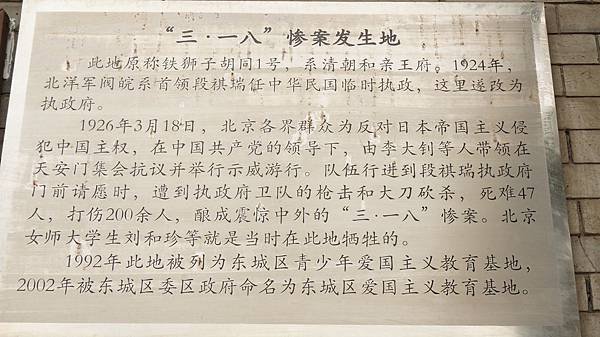 “三·一八”惨案发生地
此地原称铁狮子胡同1号，系清朝和亲王府。1924年，
北洋军阀皖系首领段祺瑞任中华民国临时执政，这里遂改为
执政府。
1926年3月18日，北京各界群众为反对日本帝国主义侵
犯中国主权，在中国共产党的领导下，由李大钊等人带领在
天安门集会抗议并举行示威游行。队伍行进到段祺瑞执政府
门前请愿时，遭到执政府卫队的枪击和大刀砍杀，死难47
人，打伤200余人，酿成震惊中外的“三·一八”惨案。北京
女师大学生刘和珍等就是当时在此地牺牲的。
1992年此地被列为东城区青少年爱国主义教育基地，
2002年被东城区委区政府命名为东城区爱国主义教育基地。